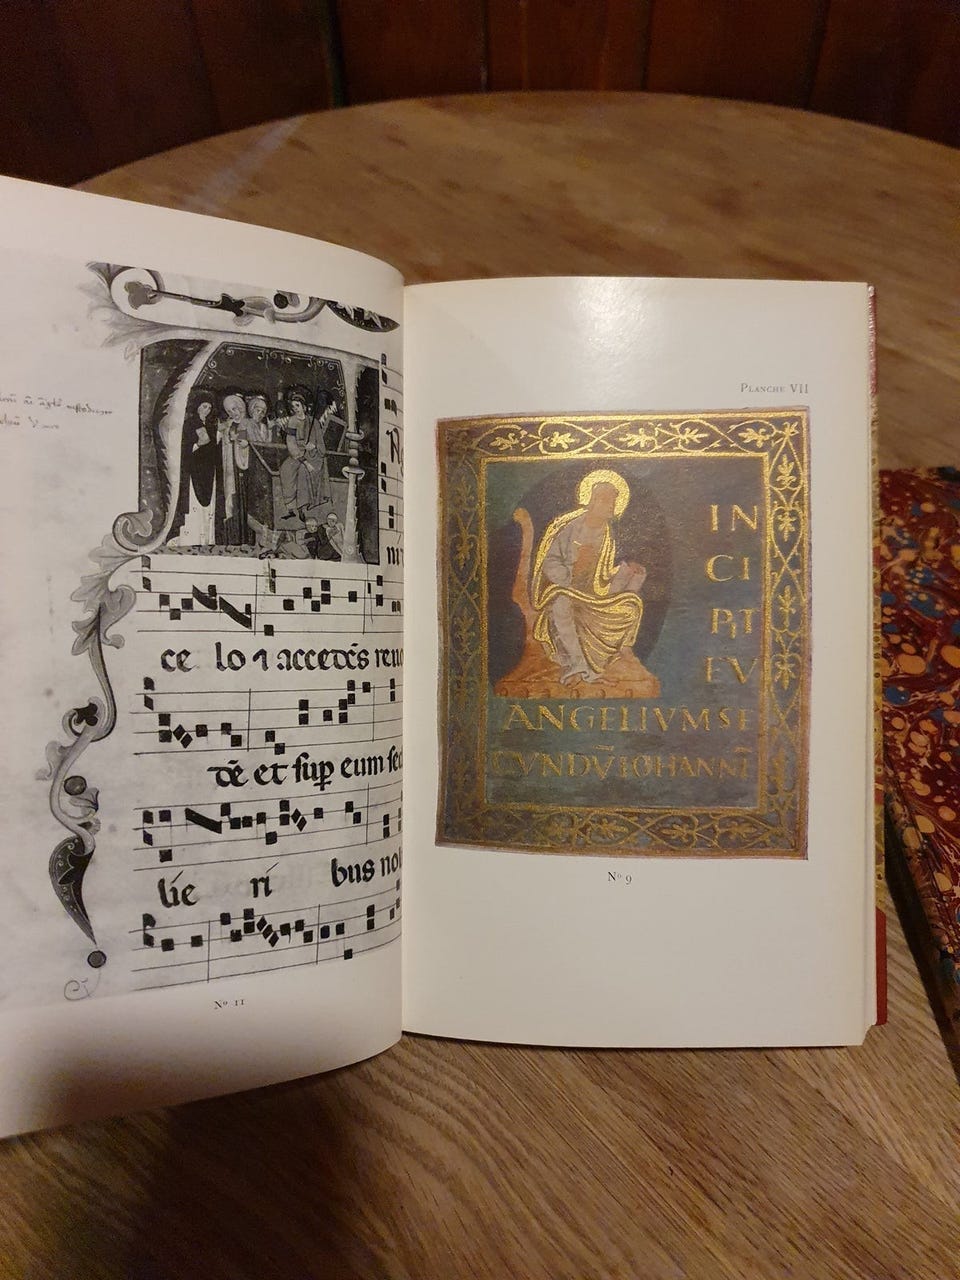 ce lo ⁊ accedēs reuo
dē et sup eum sed
bus no
Nº 11
Planche VII
IN
CI
PIT
EV
ANGELIVM SE
CVNDV̄ IOHANNĒ
Nº 9